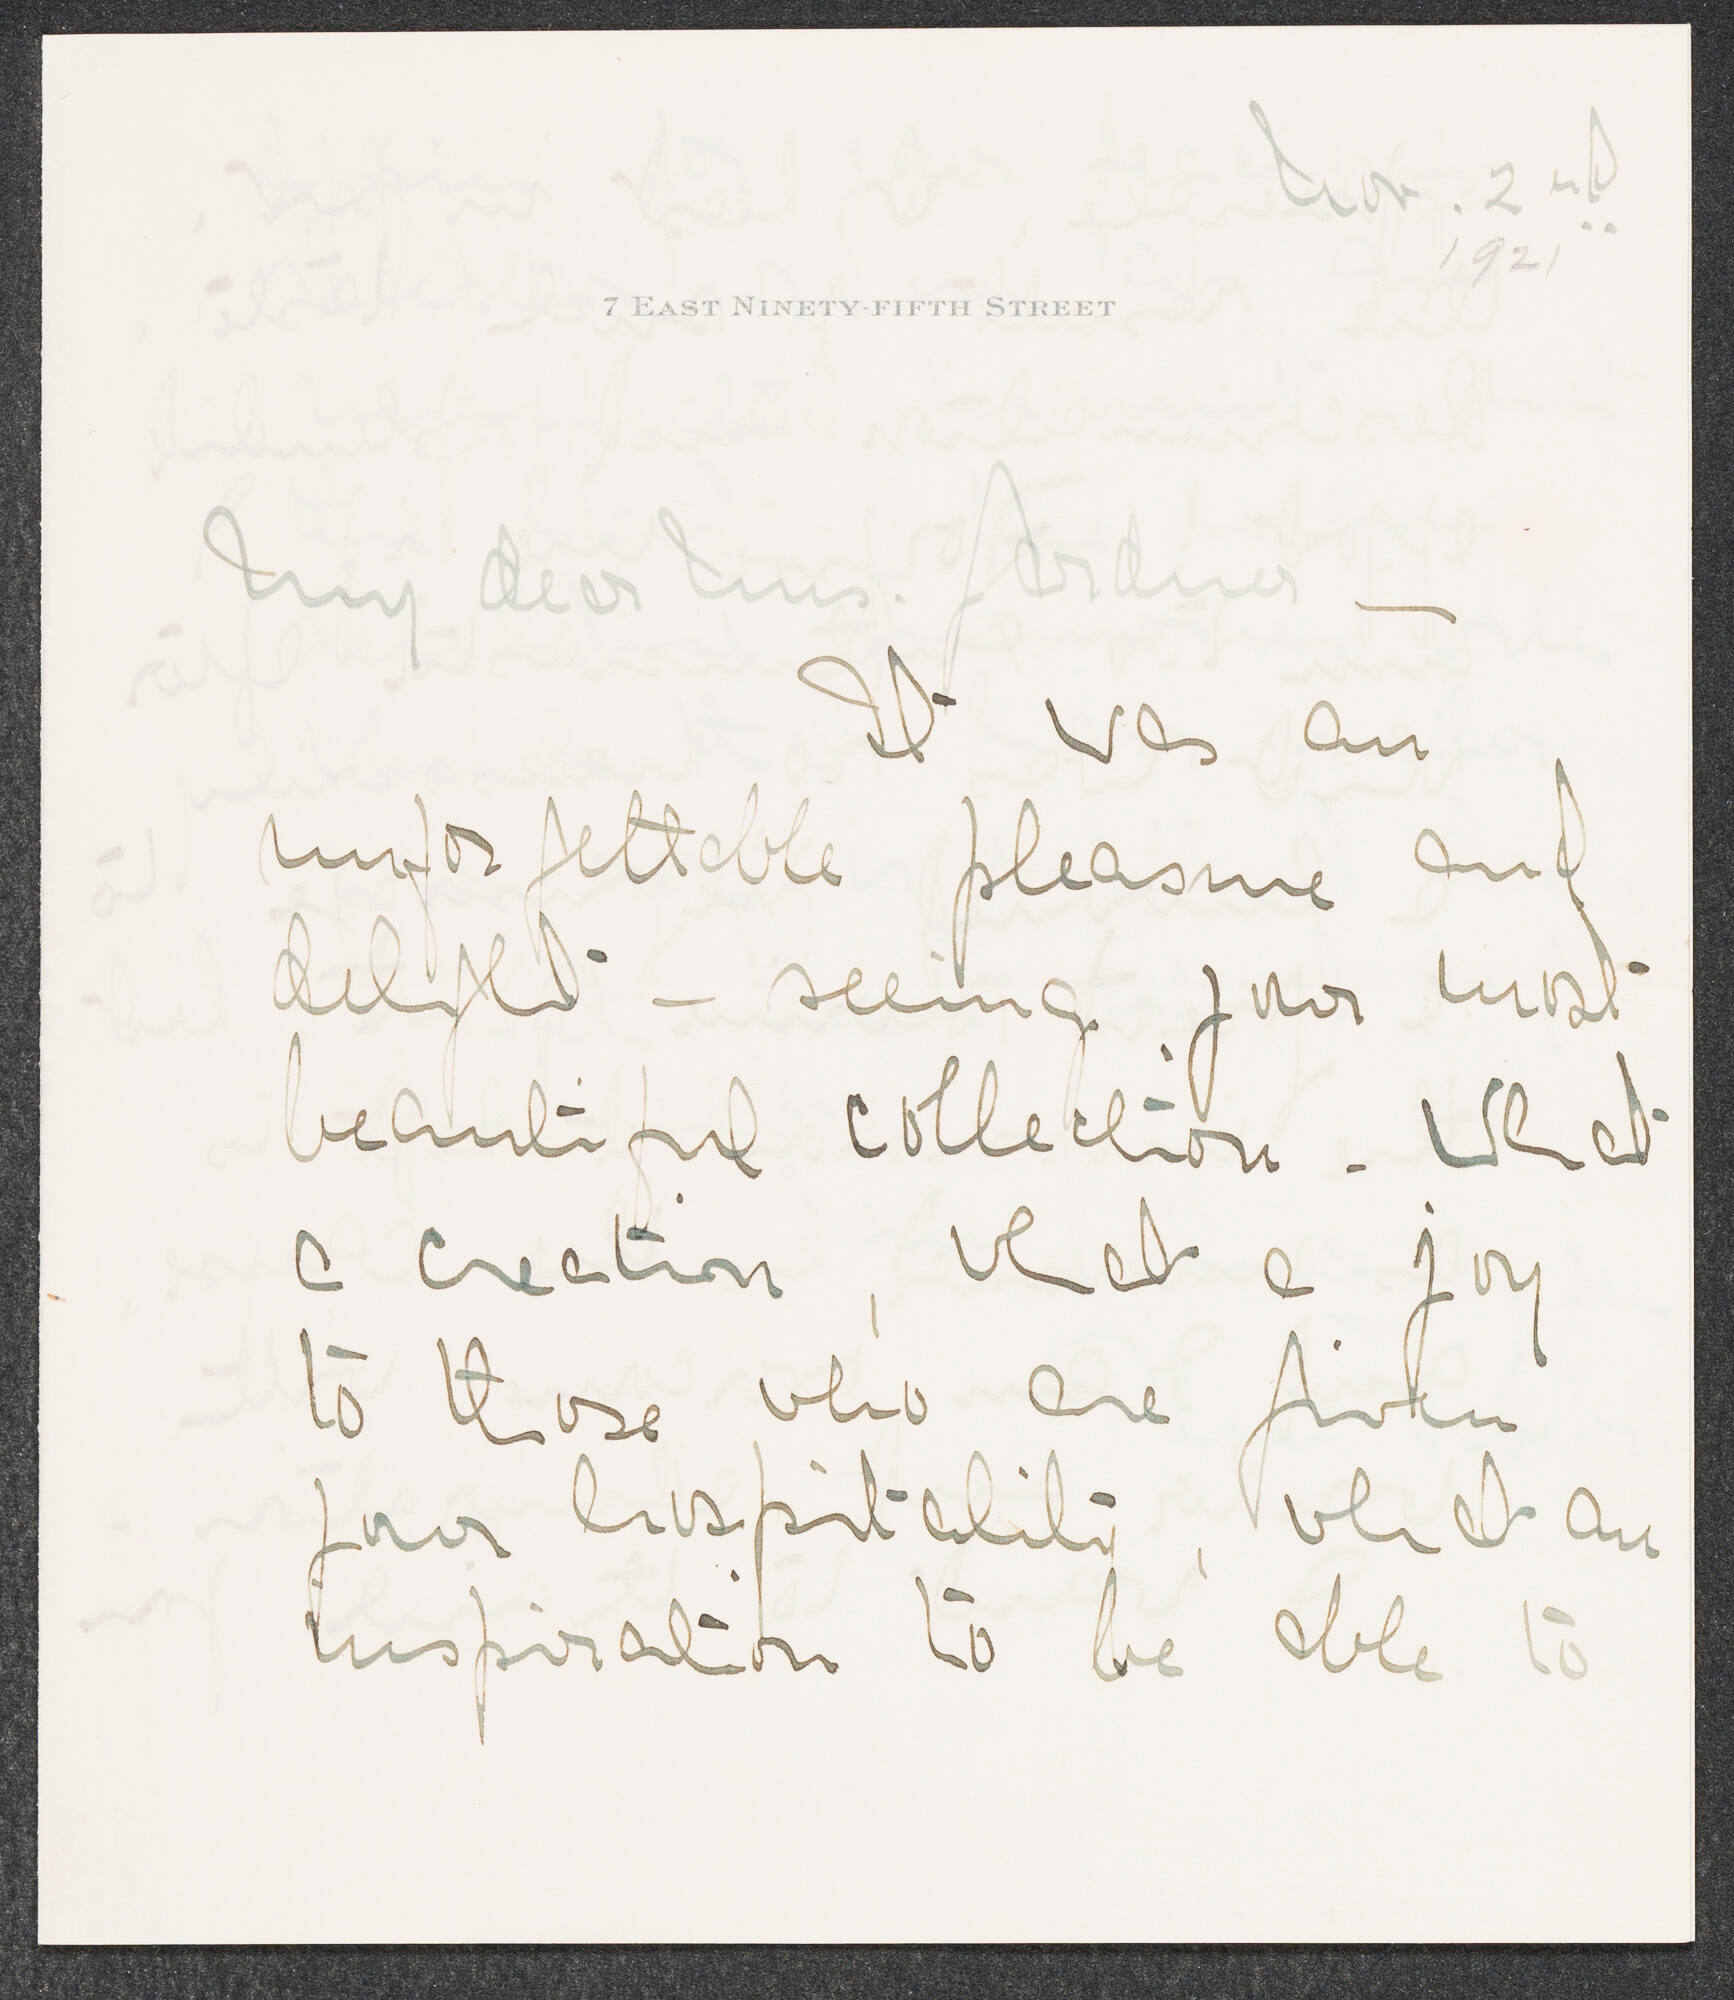 Nov. 2nd
1921
7 EAST NINETY-FIFTH STREET
My dear Mrs. Gardner —
It was an
unforgettable pleasure and
delight — seeing your most
beautiful collection - What
a creation, what a joy
to those who are given
your hospitality, what an
inspiration to be able to